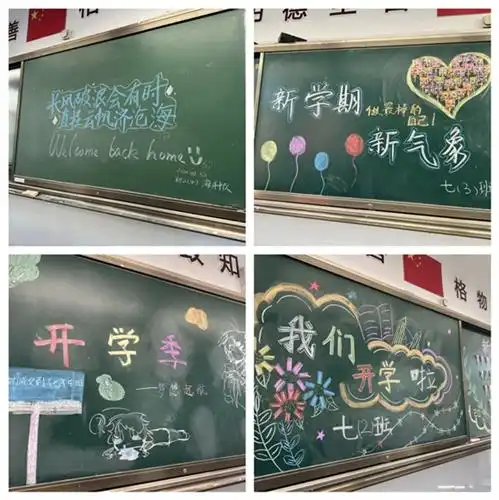 长风破浪会有时
直挂云帆济沧海
Welcome back home
新学期
做最棒的
自己!
新气象
七(3)班
知
开学季
——梦想起航
格物
我们
开学啦
七(2)班